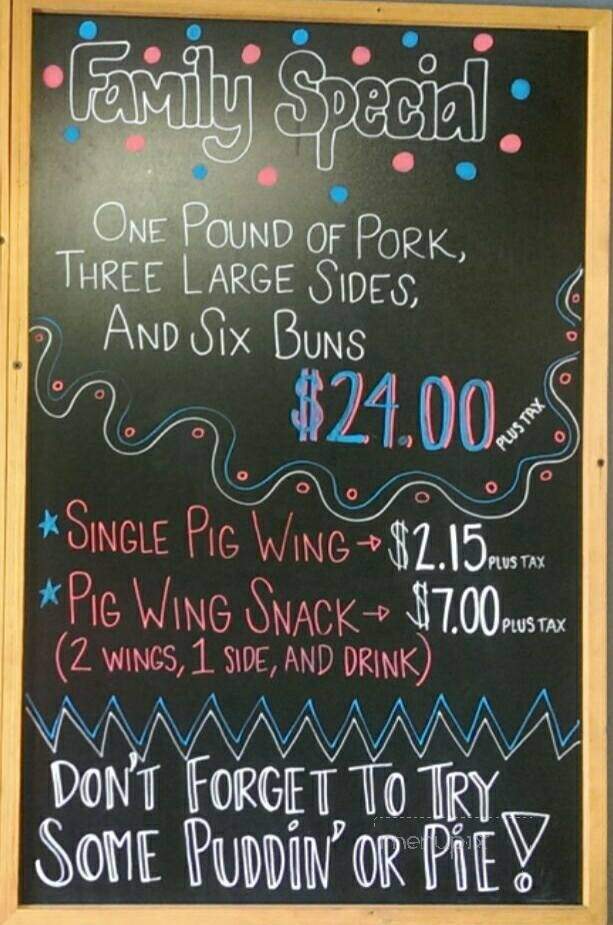 Family Special
ONE POUND OF PORK,
THREE LARGE SIDES,
AND SIX BUNS
$24.00 PLUS TAX
SINGLE PIG WING → $2.15 PLUS TAX
PIG WING SNACK → $7.00 PLUS TAX
(2 WINGS, 1 SIDE, AND DRINK)
DON'T FORGET TO TRY
SOME PUDDIN' OR PIE!
menupix